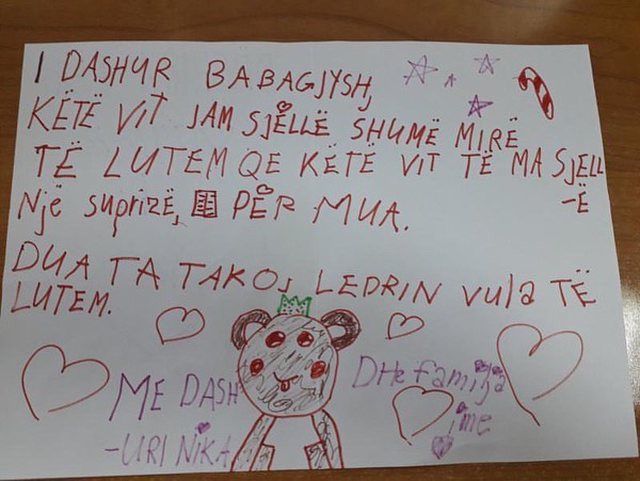 I DASHUR BABAGJYSH,
KËTË VIT JAM SJËLLË SHUMË MIRË
TË LUTEM QE KËTË VIT TË MA SJELL
-Ë
Një suprizë, PËR MUA.
DUA TA TAKOJ LEDRIN VULA TË
LUTEM.
ME DASH
-URI NIKA
DHe familja
ime